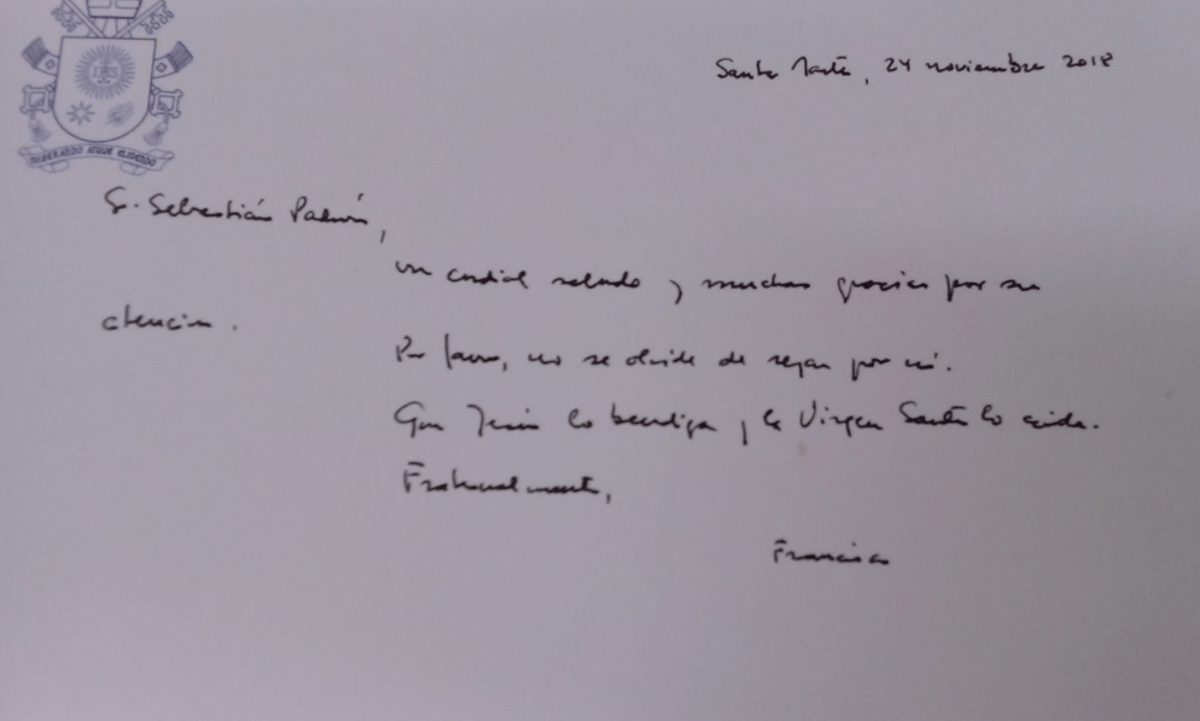 IHS
MISERANDO ATQUE ELIGENDO
Santa Marta, 24 noviembre 2018
Sr. Sebastián
un cordial saludo y muchas gracias por su
atención.
Por favor, no se olvide de rezar por mí.
Que Jesús lo bendiga y la Virgen Santa lo cuide.
Fraternalmente,
Francisco